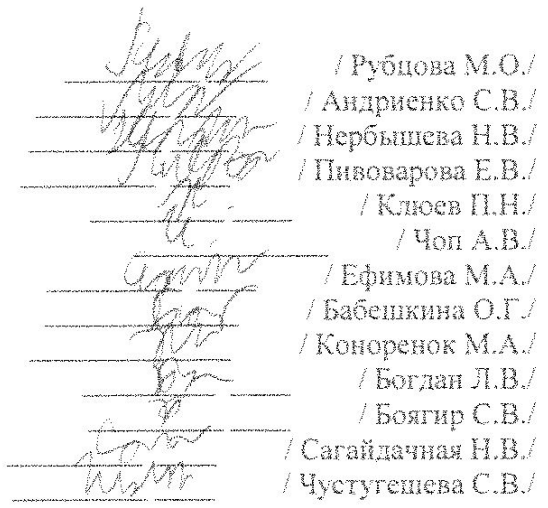 / Рубцова М.О./
/ Андриенко С.В./
/ Нербышева Н.В./
/ Пивоварова Е.В./
/ Клюев П.Н./
/ Чоп А.В./
/ Ефимова М.А./
/ Бабешкина О.Г./
/ Коноренок М.А./
/ Богдан Л.В./
/ Боягир С.В./
/ Сагайдачная Н.В./
/ Чустугешева С.В./